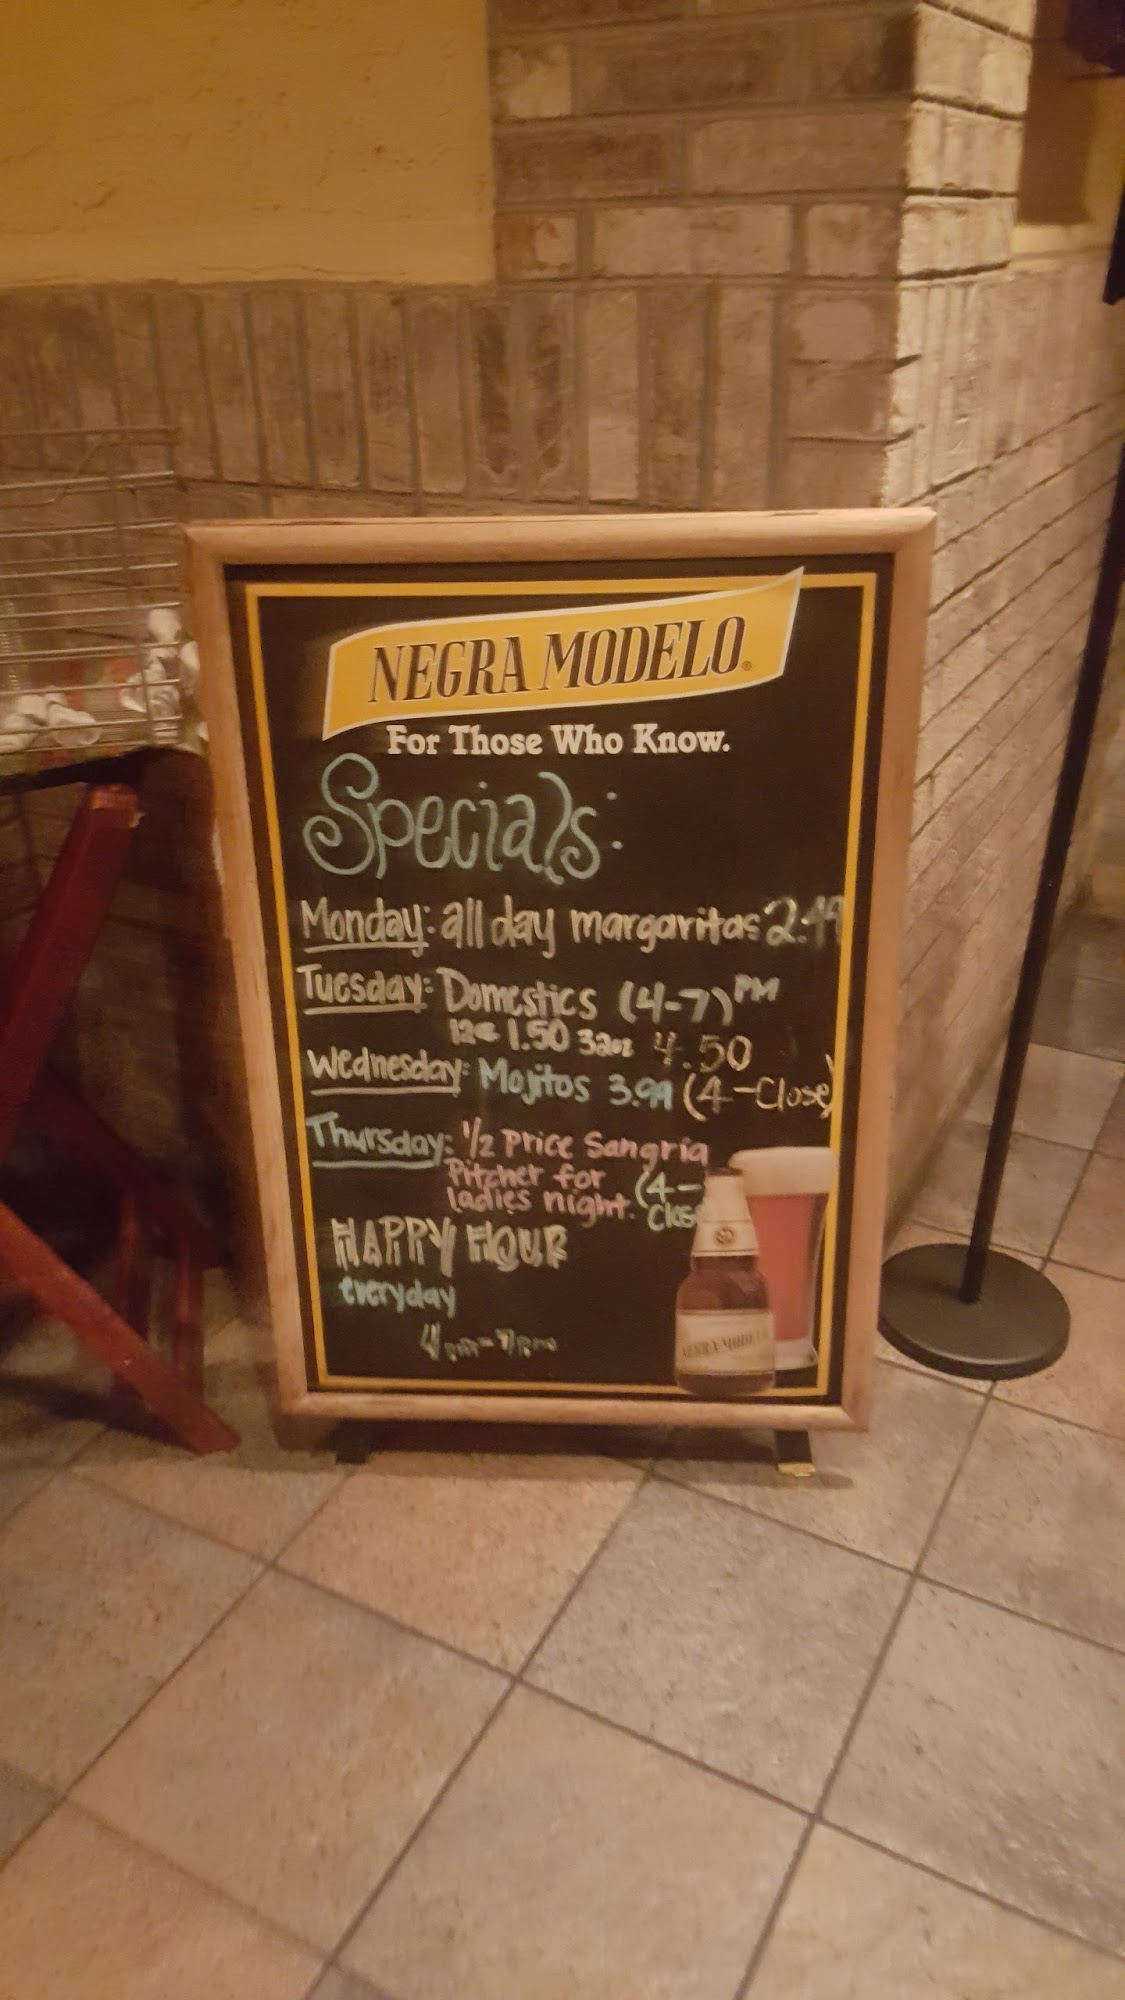 NEGRA MODELO®
For Those Who Know.
Specials:
Monday: all day margaritas 2.49
Tuesday: Domestics (4-7) PM
1.50 32oz 4.50
Wednesday: Mojitos 3.99 (4-Close)
Thursday: 1/2 Price Sangria
Pitcher for
ladies night. (4-
Clos
HAPPY HOUR
everyday
4pm-7pm
NEGRA MODELO